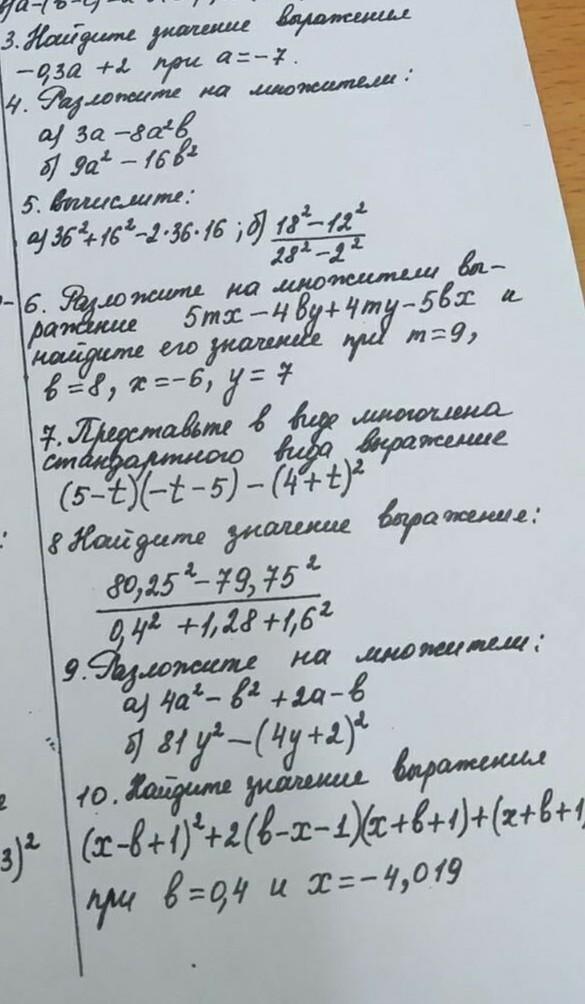 3. Найдите значение выражения
-0,3a + 2 при a = -7.
4. Разложите на множители:
а) 3a - 8a²b
б) 9a² - 16b²
5. Вычислите:
а) 36² + 16² - 2·36·16 ; б) (18² - 12²)/(28² - 2²)
6. Разложите на множители вы-
ражение 5mx - 4by + 4my - 5bx и
найдите его значение при m = 9,
b = 8, x = -6, y = 7
7. Представьте в виде многочлена
стандартного вида выражение
(5-t)(-t-5) - (4+t)²
8 Найдите значение выражение:
80,25² - 79,75²
0,4² + 1,28 + 1,6²
9. Разложите на множители:
а) 4a² - b² + 2a - b
б) 81y² - (4y+2)²
10. Найдите значение выражения
3)² (x-b+1)² + 2(b-x-1)(x+b+1) + (x+b+1)
при b = 0,4 и x = -4,019